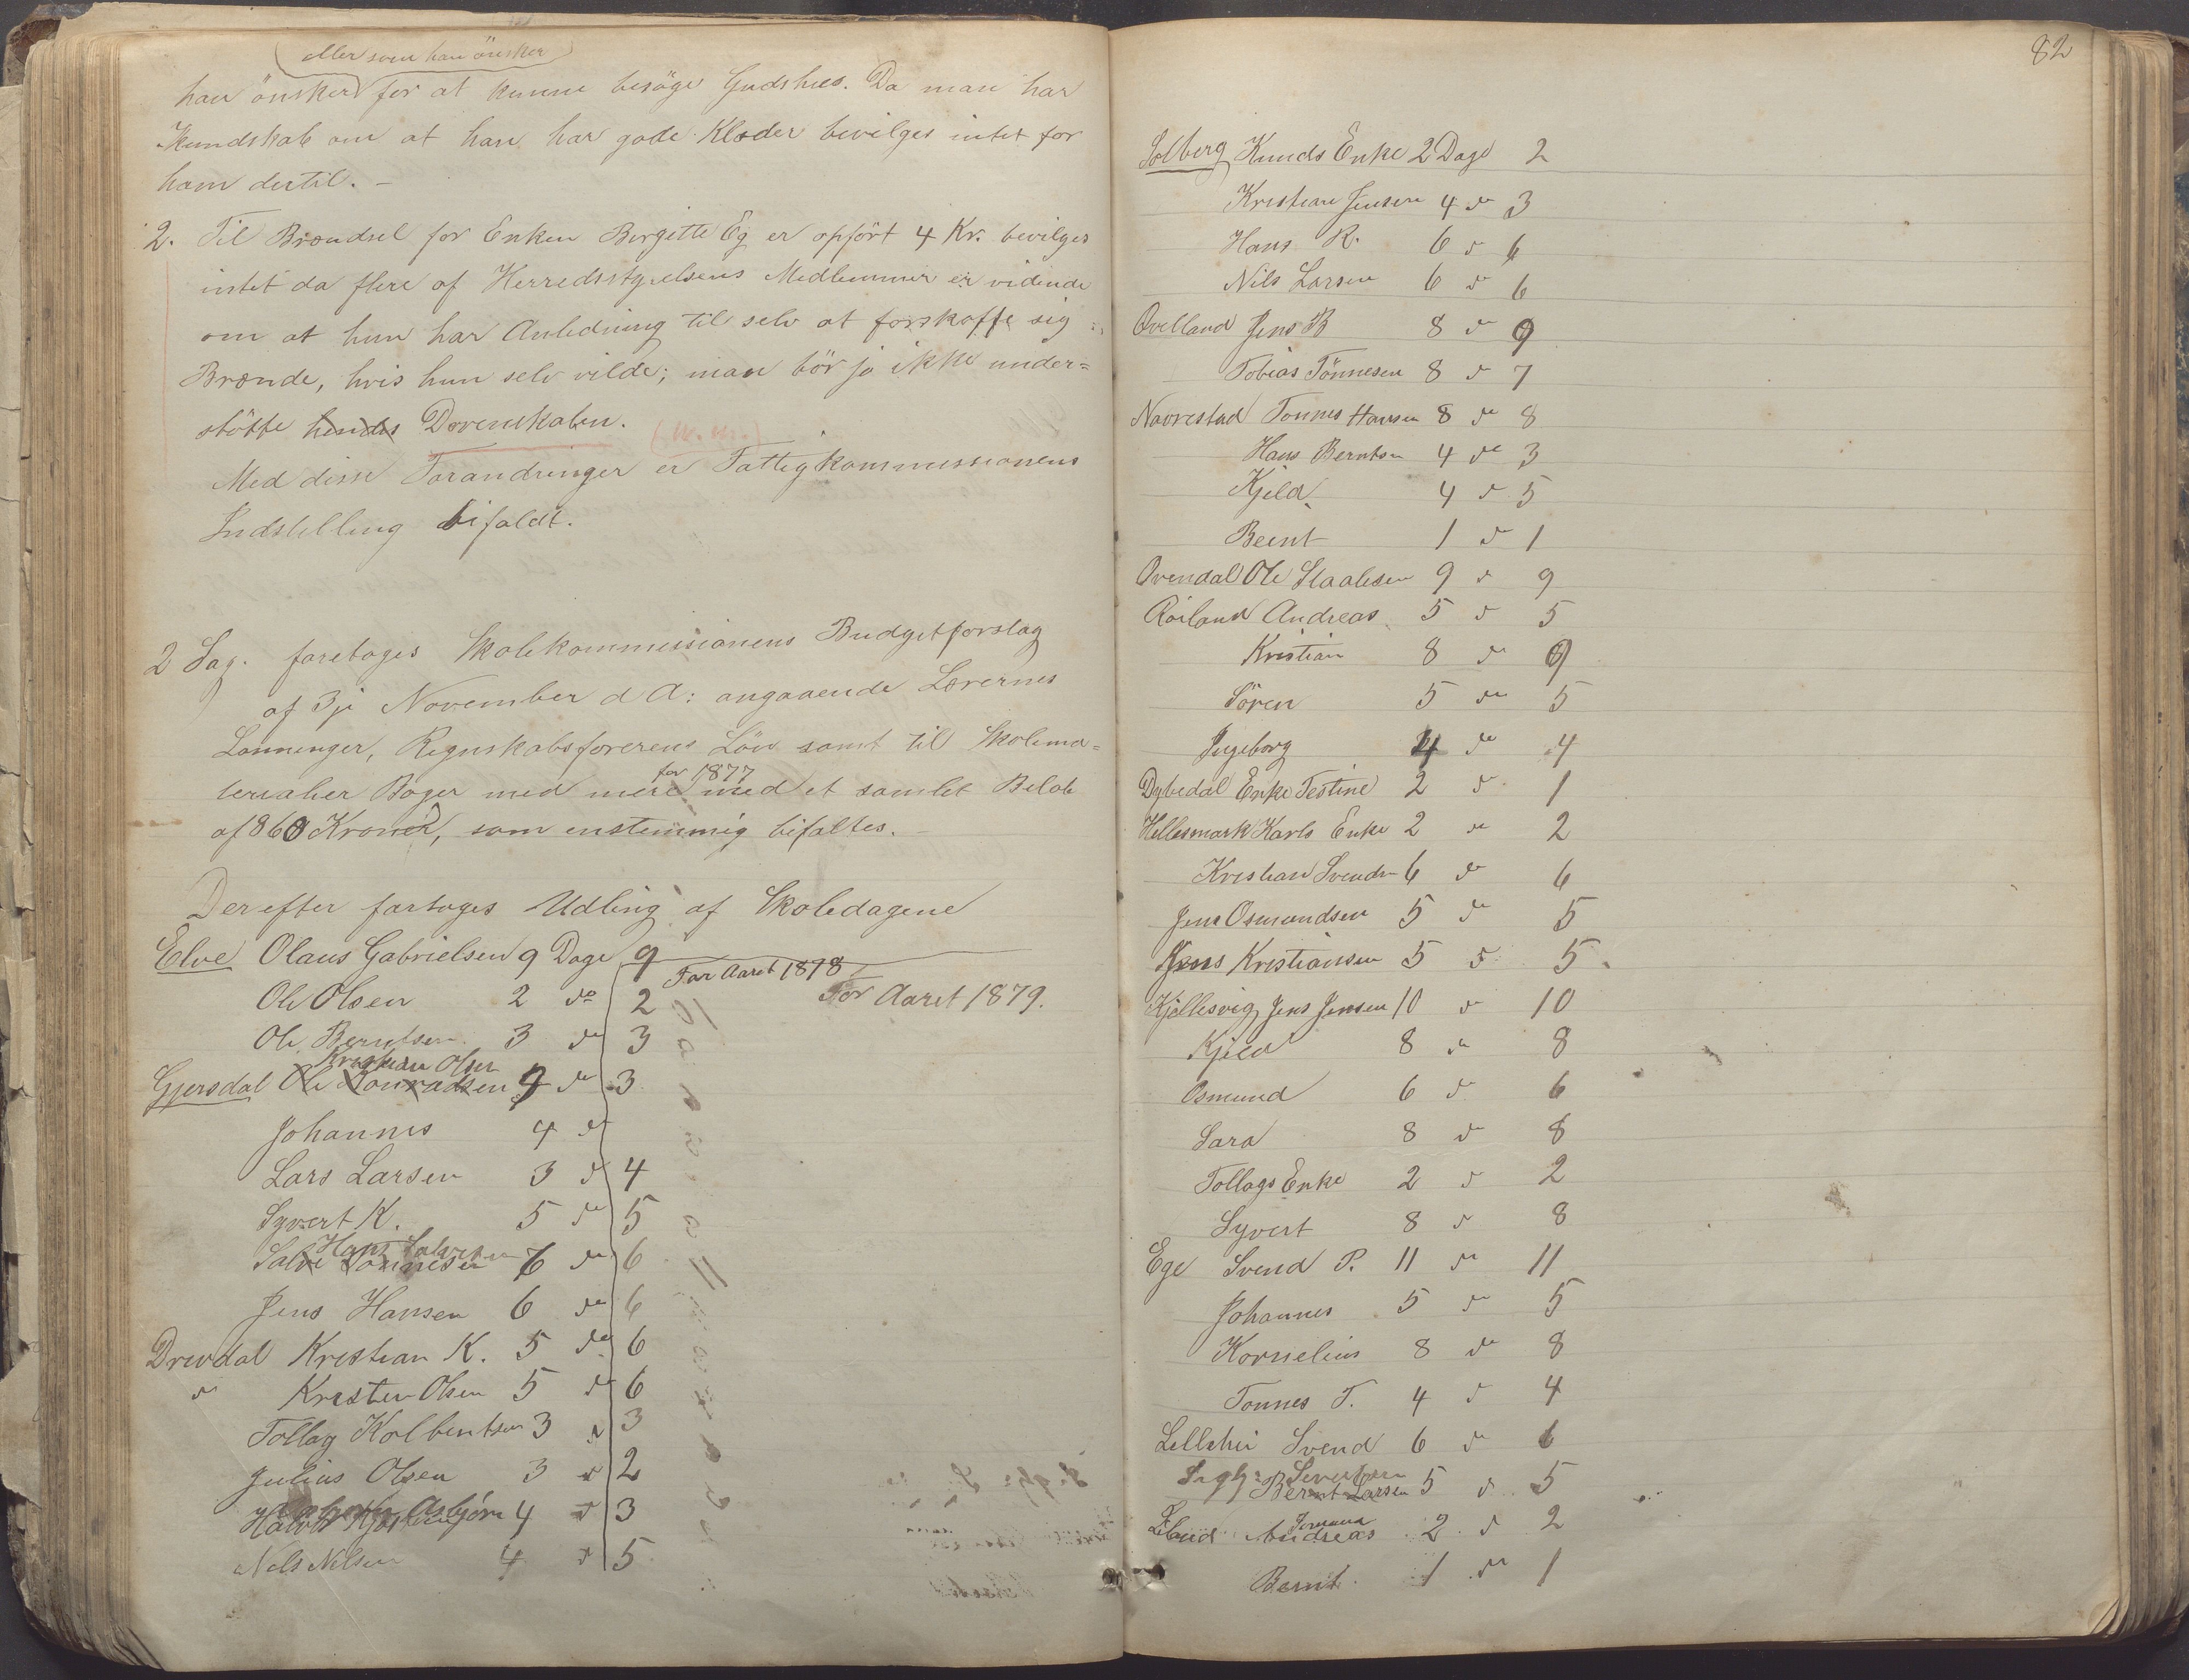 eller som han önsker
han önsker for at kunne besöge Gudshus. Da man har
Kundskab om at han har gode Klæder bevilges intet for
ham dertil. -
2. Til Brændsel for Enken Birgitte Eg er opfört 4 Kr. bevilges
intet da flere af Herredsstyrelsens Medlemmer er vidende
om at hun har Anledning til selv at forskaffe sig
Brænde, hvis hun selv vilde; man bör jo ikke under=
stötte hendes Dovenskaben.
Med disse Forandringer er Fattigkommissionens
Indstilling bifaldt.
2 Sag. foretoges Skolekommissionens Budgetforslag
af 3je November d A: angaaende Lærernes
Lønninger, Regnskabsførerens Løn samt til Skolema=
terialier Bøger med mere for 1877 med et samlet Beløb
af 860 Kroner, som enstemmig bifaltes. -
Derefter fortoges Udling af Skoledagene
Elve Olaus Gabrielsen 9 Dage 9
For Aaret 1878
Ole Olsen 2 do 2
For Aaret 1879.
Ole Berntsen 3 do 3
Kristian Olsen
Gjersdal Ole Konradsen 9 do 3
Johannes 4 do
Lars Larsen 3 do 4
Syvert K. 5 do 5
Hans Salvesen
Salve Tönnesen 6 do 6
Jens Hansen 6 do 6
Drevdal Kristian K. 5 do 6
do Kristen Olsen 5 do 6
Tollag Kolbentsen 3 do 3
Julius Olsen 3 do 2
Asbjörn 4 do 3
Nels Nilsen 4 do 5
82
Solberg Knuds Enke 2 Dage 2
Kristian Jensen 4 do 3
Hans R. 6 do 6
Nils Larsen 6 do 6
Qvelland Jens B 8 do 9
Tobias Tönnesen 8 do 7
Navrestad Tonnes Hansen 8 do 8
Hans Berntsn 4 do 3
Kjeld 4 do 5
Beent 1 do 1
Ovendal Ole Staalesen 9 do 9
Röiland Andreas 5 do 5
Kristian 8 do 9
Sören 5 do 5
Ingeborg 4 do 4
Dybedal Enke Testine 2 do 1
Hellesmark Karls Enke 2 do 2
Kristian Svends 6 do 6
Jens Osmundsen 5 do 5
Jens Kristiansen 5 do 5
Kjöllesvig Jens Jensen 10 do 10
Kjeld 8 do 8
Osmund 6 do 6
Sara 8 do 8
Tollags Enke 2 do 2
Syvert 8 do 8
Ege Svend P. 11 do 11
Johannes 5 do 5
Kornelius 8 do 8
Tonnes T. 4 do 4
Lillehei Svend 6 do 6
Bernt Larsen 5 do 5
Andreas 2 do 2
Bernt 1 do 1